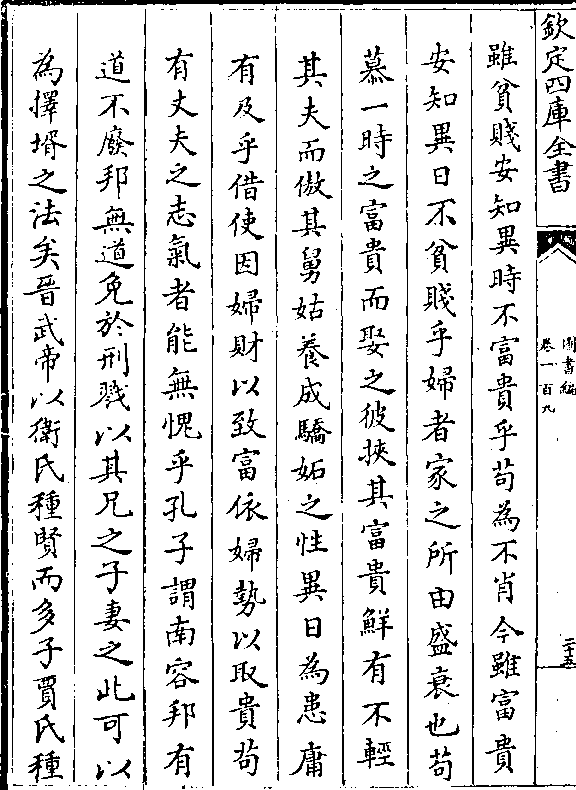 欽定四庫全書
圖書編
卷一百九
二十五
雖貧賤安知異時不富貴乎苟為不肖今雖富貴
安知異日不貧賤乎婦者家之所由盛衰也苟
慕一時之富貴而娶之彼挾其富貴鮮有不輕
其夫而傲其舅姑養成驕妬之性異日為患庸
有及乎借使因婦財以致富依婦勢以取貴苟
有丈夫之志氣者能無愧乎孔子謂南容邦有
道不廢邦無道免於刑戮以其兄之子妻之此可以
為擇壻之法矣晉武帝以衛氏種賢而多子賈氏種